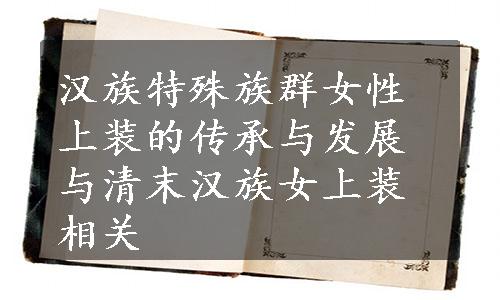 汉族特殊族群女性
上装的传承与发展
与清末汉族女上装
相关